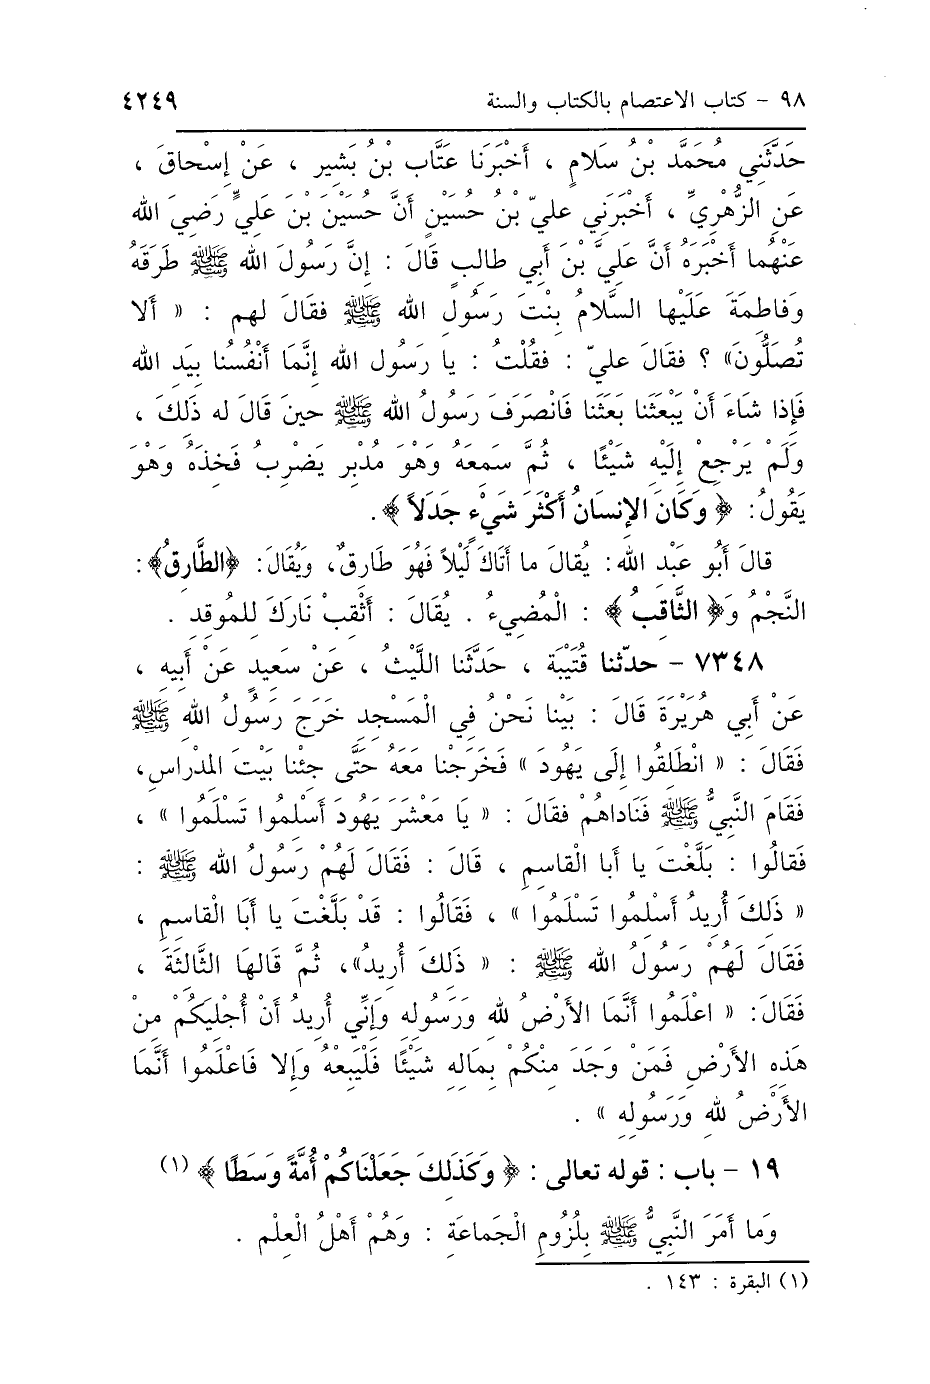 ٩٨ - كتاب الاعتصام بالكتاب والسنة ٤٢٤٩
حَدَّثَنِي مُحَمَّد بْنُ سَلامٍ ، أَخْبَرَنا عَتَّاب بْنُ بَشِيرٍ ، عَنْ إِسْحاقَ ،
عَنِ الزُّهْرِيِّ ، أَخْبَرَنِي عليّ بْنُ حُسَيْنٍ أَنَّ حُسَيْنَ بْنَ عَلِيٍّ رَضِيَ الله
عَنْهُما أَخْبَرَهُ أَنَّ عَلِيَّ بْنَ أَبِي طالِبٍ قَالَ : إِنَّ رَسُولَ الله ﷺ طَرَقَهُ
وَفاطِمَةَ عَلَيْها السَّلامُ بِنْتَ رَسُولِ الله ﷺ فقالَ لهم : « أَلا
تُصَلُّونَ» ؟ فقَالَ عليّ : فقُلْتُ : يا رَسُول الله إِنَّمَا أَنْفُسُنا بِيَدِ الله
فَإِذا شَاءَ أَنْ يَبْعَثَنا بَعَثَنا فَانْصَرَفَ رَسُولُ الله ﷺ حينَ قَالَ له ذَلِكَ ،
وَلَمْ يَرْجِعْ إِلَيْهِ شَيْئًا ، ثُمَّ سَمِعَهُ وَهْوَ مُدْبِر يَضْرِبُ فَخِذَهُ وَهْوَ
يَقُولُ: ﴿ وَكَانَ الإِنسَانُ أَكْثَرَ شَيْءٍ جَدَلاً ﴾.
قالَ أَبُو عَبْدِ الله: يُقالَ ما أَتاكَ لَيْلاً فَهُوَ طَارِقٌ، وَيُقَالَ: ﴿الطَّارِقُ﴾:
النَّجْمُ وَ﴿ الثَّاقِبُ ﴾ : الْمُضِيءُ . يُقَالَ : أَثْقِبْ نَارَكَ للمُوقِدِ .
٧٣٤٨ - حدّثنا قُتَيْبَة ، حَدَّثَنا اللَّيْثُ ، عَنْ سَعِيدٍ عَنْ أَبِيهِ ،
عَنْ أَبِي هُرَيْرَةَ قَالَ : بَيْنا نَحْنُ فِي الْمَسْجِدِ خَرَجَ رَسُولُ الله ﷺ
فَقَالَ : « انْطَلِقُوا إِلَى يَهُودَ » فَخَرَجْنا مَعَهُ حَتَّى جِئْنا بَيْتَ المِدْراسِ،
فَقَامَ النَّبِيُّ ﷺ فَنَادَاهُمْ فقَالَ : « يَا مَعْشَرَ يَهُودَ أَسْلِمُوا تَسْلَمُوا » ،
فَقالُوا : بَلَّغْتَ يا أَبا الْقاسِمِ ، قَالَ : فَقَالَ لَهُمْ رَسُولُ الله ﷺ :
« ذَلِكَ أُرِيدُ أَسْلِمُوا تَسْلَمُوا » ، فَقَالُوا : قَدْ بَلَّغْتَ يا أَبَا الْقاسِمِ ،
فَقَالَ لَهُمْ رَسُولُ الله ﷺ : « ذَلِكَ أُرِيدُ»، ثُمَّ قَالَها الثَّالِثَةَ ،
فَقَالَ: « اعْلَمُوا أَنَّمَا الأَرْضُ لله وَرَسُولِهِ وَإِنِّي أُرِيدُ أَنْ أُجْلِيَكُمْ مِنْ
هَذِهِ الأَرْضِ فَمَنْ وَجَدَ مِنْكُمْ بِمَالِهِ شَيْئًا فَلْيَبِعْهُ وَإِلا فَاعْلَمُوا أَنَّمَا
الأَرْضُ لله وَرَسُولِهِ » .
١٩ - باب : قوله تعالى : ﴿ وَكَذَلِكَ جَعَلْنَاكُمْ أُمَّةً وَسَطًا ﴾ (١)
وَما أَمَرَ النَّبِيُّ ﷺ بِلُزُومِ الْجَماعَةِ : وَهُمْ أَهْلُ الْعِلْم .
(١) البقرة : ١٤٣ .